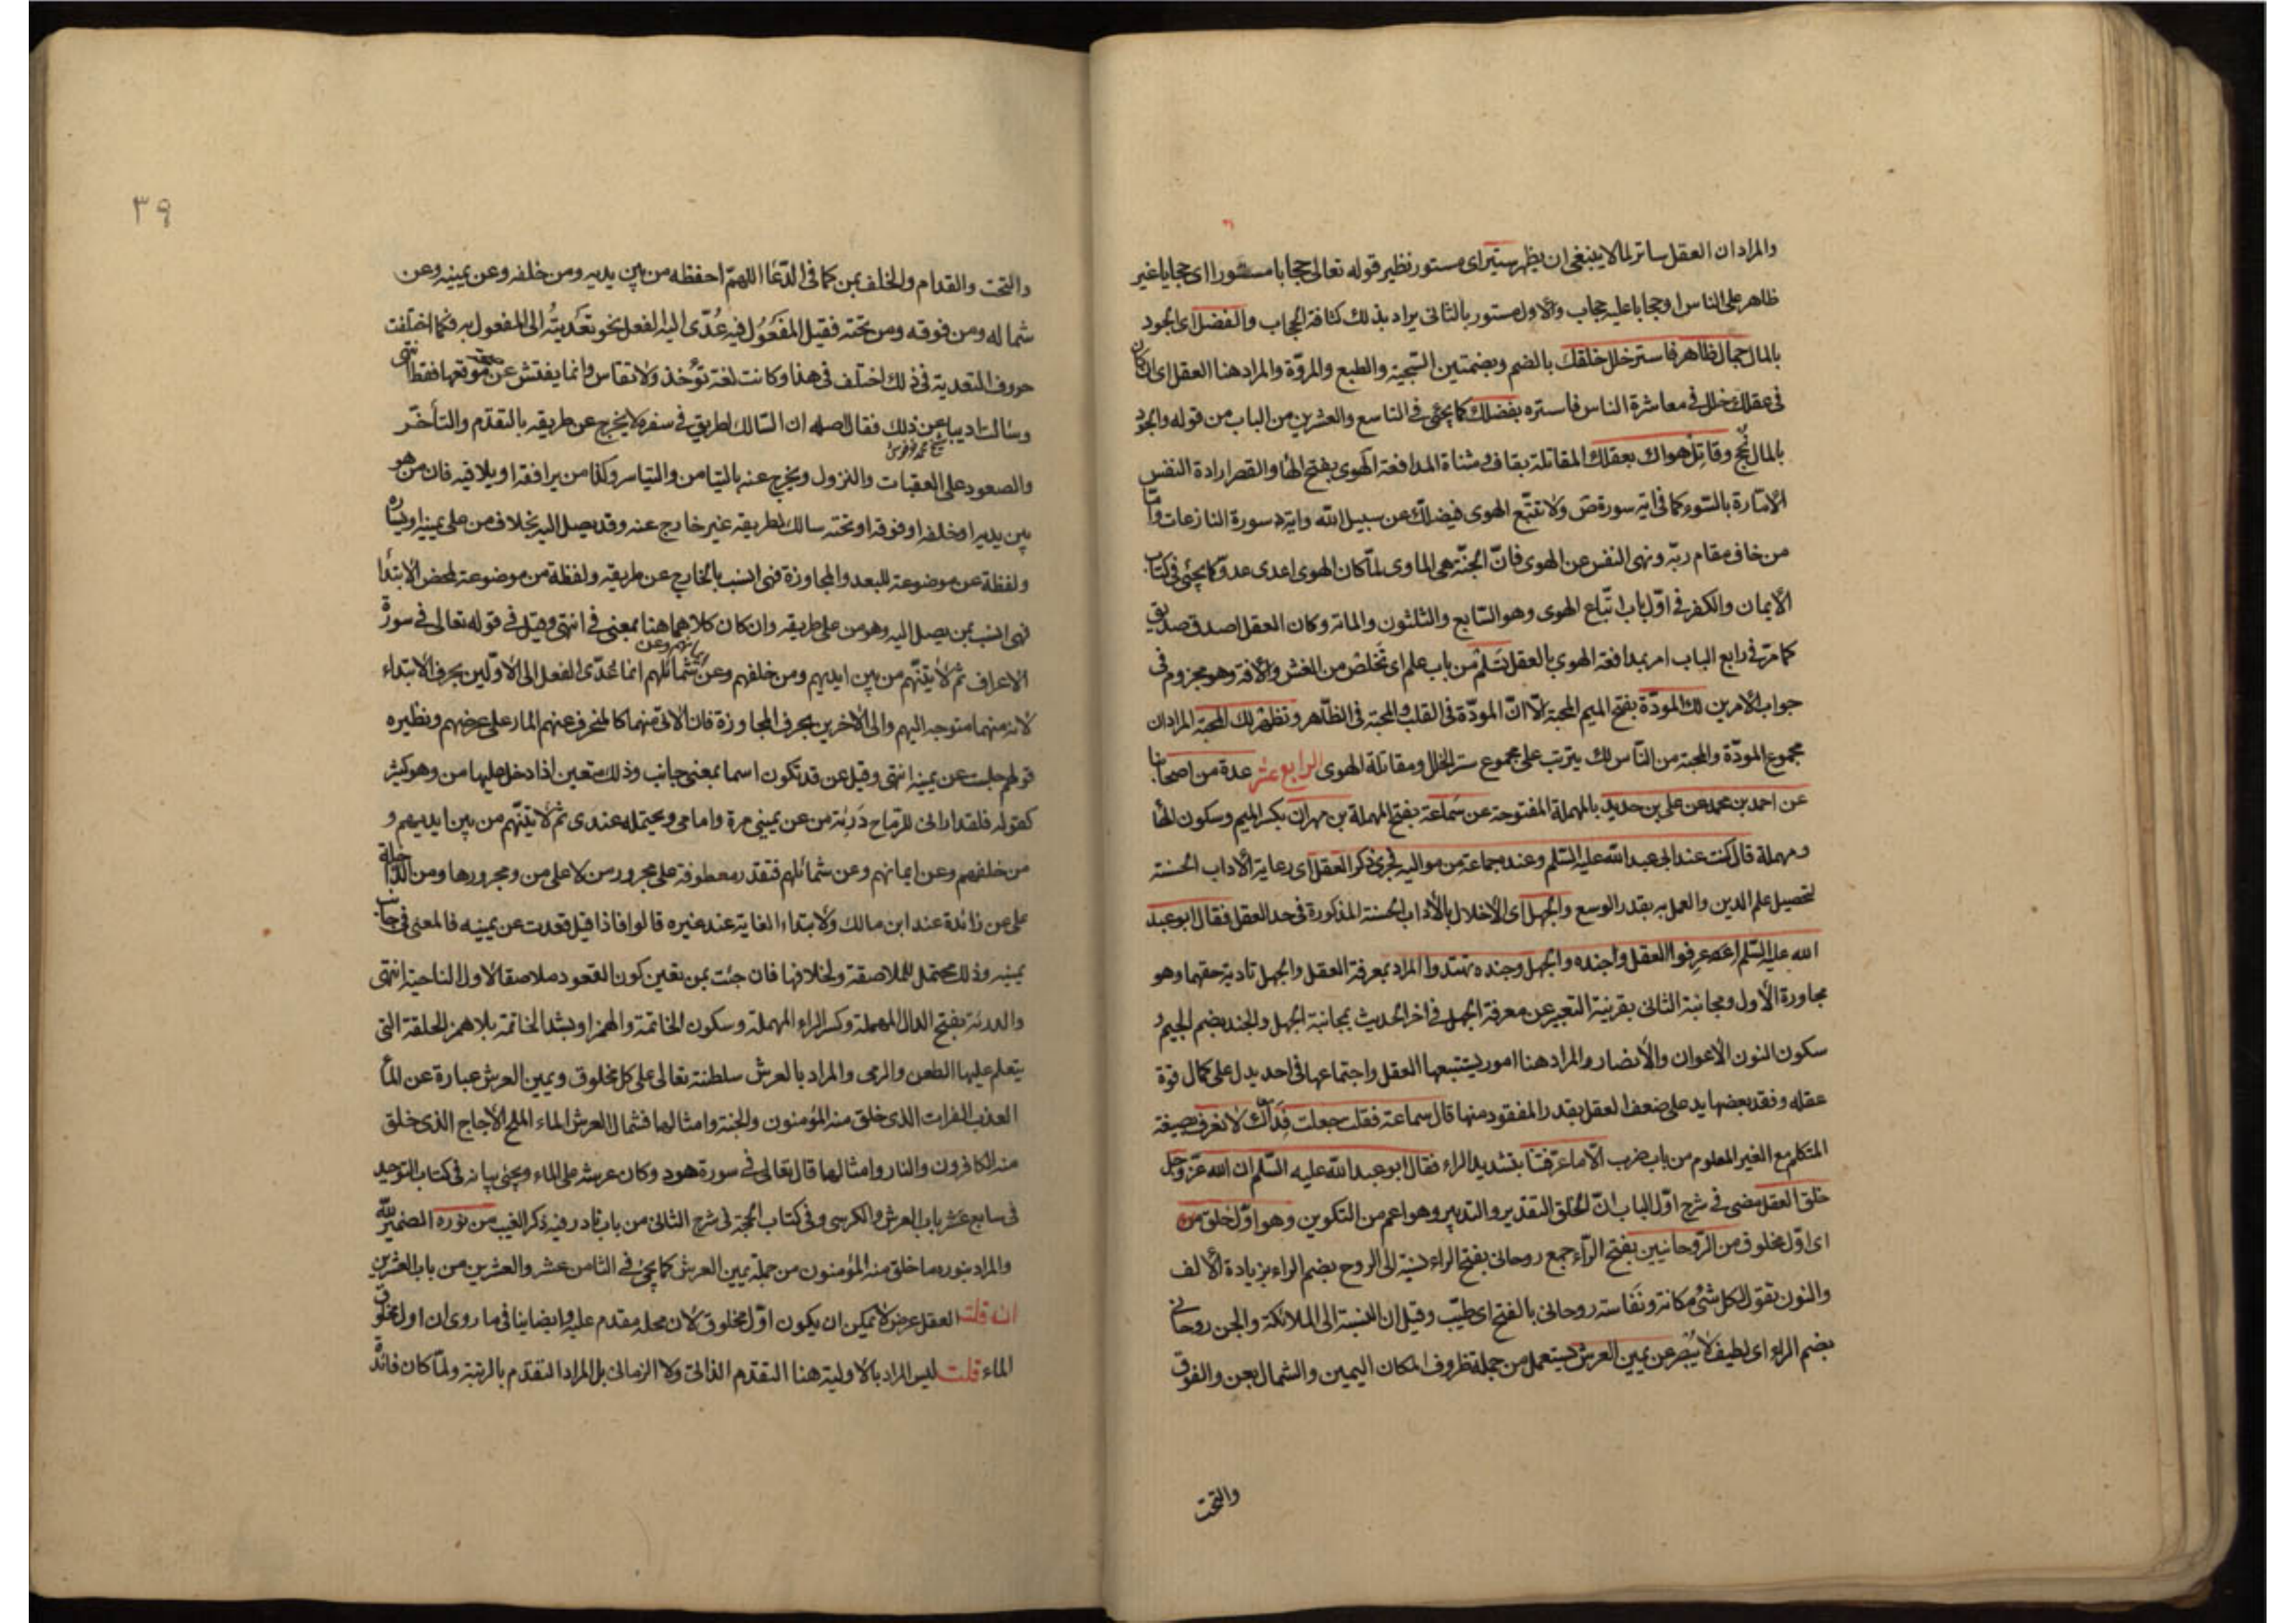 والمراد ان العقل ساتر لما لا ينبغى ان يظهر ستير اى مستور نظير قوله تعالى حجابا مستورا اى حجابا غير
ظاهر على الناس او حجابا عليه حجاب والاول مستور بالثانى يراد بذلك كثافة الحجاب والفضل اى الجود
بالمال جمال ظاهر فاستر خلل خلقك بالضم وبضمتين السجية والطبع والمروّة والمراد هنا العقل اى ان كان
فى عقلك خلل فى معاشرة الناس فاستره بفضلك كما يجئ فى التاسع والعشرين من الباب من قوله والجود
بالمال نجح وقاتل هواك بعقلك المقاتلة بقاف ومثناة المدافعة الهوى بفتح الها والقصر ارادة النفس
الامّارة بالسّوء كما فى اية سورة ص ولا تتبع الهوى فيضلّك عن سبيل الله واية سورة النازعات وامّا
من خاف مقام ربّه ونهى النفس عن الهوى فانّ الجنّة هى الماوى لمّا كان الهوى اعدى عدوّ كما يجئ فى كتاب
الايمان والكفر فى اوّل باب اتّباع الهوى وهو السّابع والثلثون والمائة وكان العقل اصدق صديق
كما مرّ فى رابع الباب امر بمدافعة الهوى بالعقل تسلم من باب علم اى تخلص من الغش والافة وهو مجزوم فى
جواب الامرين لك المودّة بفتح الميم المحبة الّا انّ المودّة فى القلب والمحبة فى الظّاهر وتظهر لك المحبة المراد ان
مجموع المودّة والمحبة من النّاس لك يترتب على مجموع ستر الخلل ومقاتلة الهوى الرابع عشر عدة من اصحابنا
عن احمد بن محمد عن على بن حديد بالمهملة المفتوحة عن سماعة بفتح المهملة بن مهران بكسر الميم وسكون الها
ومهملة قال كنت عند ابى عبد الله عليه السّلم وعنده جماعة من مواليه فجرى ذكر العقل اى رعاية الاداب الحسنة
لتحصيل علم الدين والعمل به بقدر الوسع والجهل اى الاخلال بالاداب الحسنة المذكورة فى حد العقل فقال ابو عبد
الله عليه السّلم اعرفوا العقل وجنده والجهل وجنده تهتدوا المراد بمعرفة العقل والجهل تادية حقهما وهو
مجاورة الاول ومجانبة الثانى بقرينة التعبير عن معرفة الجهل فى اخر الحديث بمجانبة الجهل والجند بضم الجيم و
سكون النون الاعوان والانصار والمراد هنا امور يستتبعها العقل واجتماعها فى احد يدل على كمال قوة
عقله وفقد بعضها يدل على ضعف العقل بقدر المفقود منها قال سماعة فقلت جعلت فداك لا نعرف بصيغة
المتكلم مع الغير المعلوم من باب ضرب الّا ما عرّفتنا بتشديد الراء فقال ابو عبد الله عليه السّلم ان الله عزّ وجل
خلق العقل مضى فى شرح اوّل الباب انّ الخلق التقدير والتدبير وهو اعم من التكوين وهو اوّل خلق من
اى اوّل مخلوق من الرّوحانيين بفتح الرّاء جمع روحانى بفتح الراء نسبة الى الروح بضم الراء بزيادة الالف
والنون تقول لكل شئ مكانة ونفاسته روحانى بالفتح اى طيّب وقيل ان النسبة الى الملائكة والجن روحانى
بضم الراء اى لطيف لا يُبصر عن يمين العرش يستعمل من جملة ظروف المكان اليمين والشمال بعن والفوق
والتحت
٣٩
والتحت والقدام والخلف بمن كما فى الدّعا اللهمّ احفظه من بين يديه ومن خلفه وعن يمينه وعن
شماله ومن فوقه ومن تحته فقيل المفعول فيه عُدّى اليه الفعل نحو تعديته الى المفعول به فكما اختلفت
حروف التعدية فى ذلك اختلف فى هذا وكانت لغة تؤخذ ولا تقاس وانما يفتش عن صحة موقعها فقط انتهى
وسالت اديبا عن ذلك فقال اصله ان السّالك لطريق فى سفره لا يخرج عن طريقه بالتقدّم والتأخّر
والصعود على العقبات والنزول ويخرج عنه بالتيامن والتياسر وكذا من يرافقه او يلاقيه فان من هو
بين يديه او خلفه او فوقه او تحته سالك لطريقه غير خارج عنه وقد يصل اليه بخلاف من على يمينه او يساره
ولفظة عن موضوعة للبعد والمجاوزة فهى انسب بالخارج عن طريقه ولفظة من موضوعة لمحض الابتدا
فهى انسب بمن يصل اليه وهو من على طريقه وان كان كلاهما هنا بمعنى فى انتهى وقيل فى قوله تعالى فى سورة
الاعراف ثم لاتينّهم من بين ايديهم ومن خلفهم وعن ايمانهم وعن شمائلهم انما عُدّى الفعل الى الاوّلين بحرف الابتداء
لانه منهما متوجه اليهم والى الاخرين بحرف المجاوزة فان الاتى منهما كالمنحرف عنهم المار على عرضهم ونظيره
قولهم جلست عن يمينه انتهى وقيل عن قد تكون اسما بمعنى جانب وذلك متعين اذا دخل عليها من وهو كثير
كقوله فلقد ارانى للرماح دَرِئة من عن يمينى مرة وامامى ويحتمله عندى ثم لاتينّهم من بين ايديهم و
من خلفهم وعن ايمانهم وعن شمائلهم فتقدر معطوفة على مجرور من لا على من ومجرورها ومن الداخلة
على عن زائدة عند ابن مالك ولابتداء الغاية عند غيره قالوا فاذا قيل قعدت عن يمينه فالمعنى فى جانب
يمينه وذلك محتمل للملاصقة ولخلافها فان جئت بمن تعين كون القعود ملاصقا لاول الناحية انتهى
والدرئة بفتح الدال المهملة وكسر الراء المهملة وسكون الخاتمة والهمز او بشد الخاتمة بلا همز الحلقة التى
يتعلم عليها الطعن والرمى والمراد بالعرش سلطنته تعالى على كل مخلوق ويمين العرش عبارة عن الماء
العذب الفرات الذى خلق منه المؤمنون والجنة وامثالها فشمال العرش الماء الملح الاجاج الذى خلق
منه الكافرون والنار وامثالها قال تعالى فى سورة هود وكان عرشه على الماء ويجئ بيانه فى كتاب التوحيد
فى سابع عشر باب العرش والكرسى وفى كتاب الحجة فى شرح الثانى من باب نادر فيه ذكر الغيب من نوره الضمير لله
والمراد بنوره ما خلق منه المؤمنون من جملة يمين العرش كما يجئ فى الثامن عشر والعشرين من باب العشرين
ان قلت العقل عرض لا يمكن ان يكون اوّل مخلوق لان محله مقدم عليه وايضا ينافى ما روى ان اول مخلوق
الماء قلت ليس المراد بالاولية هنا التقدّم الذاتى ولا الزمانى بل المراد التقدّم بالرتبة ولمّا كان فائدة